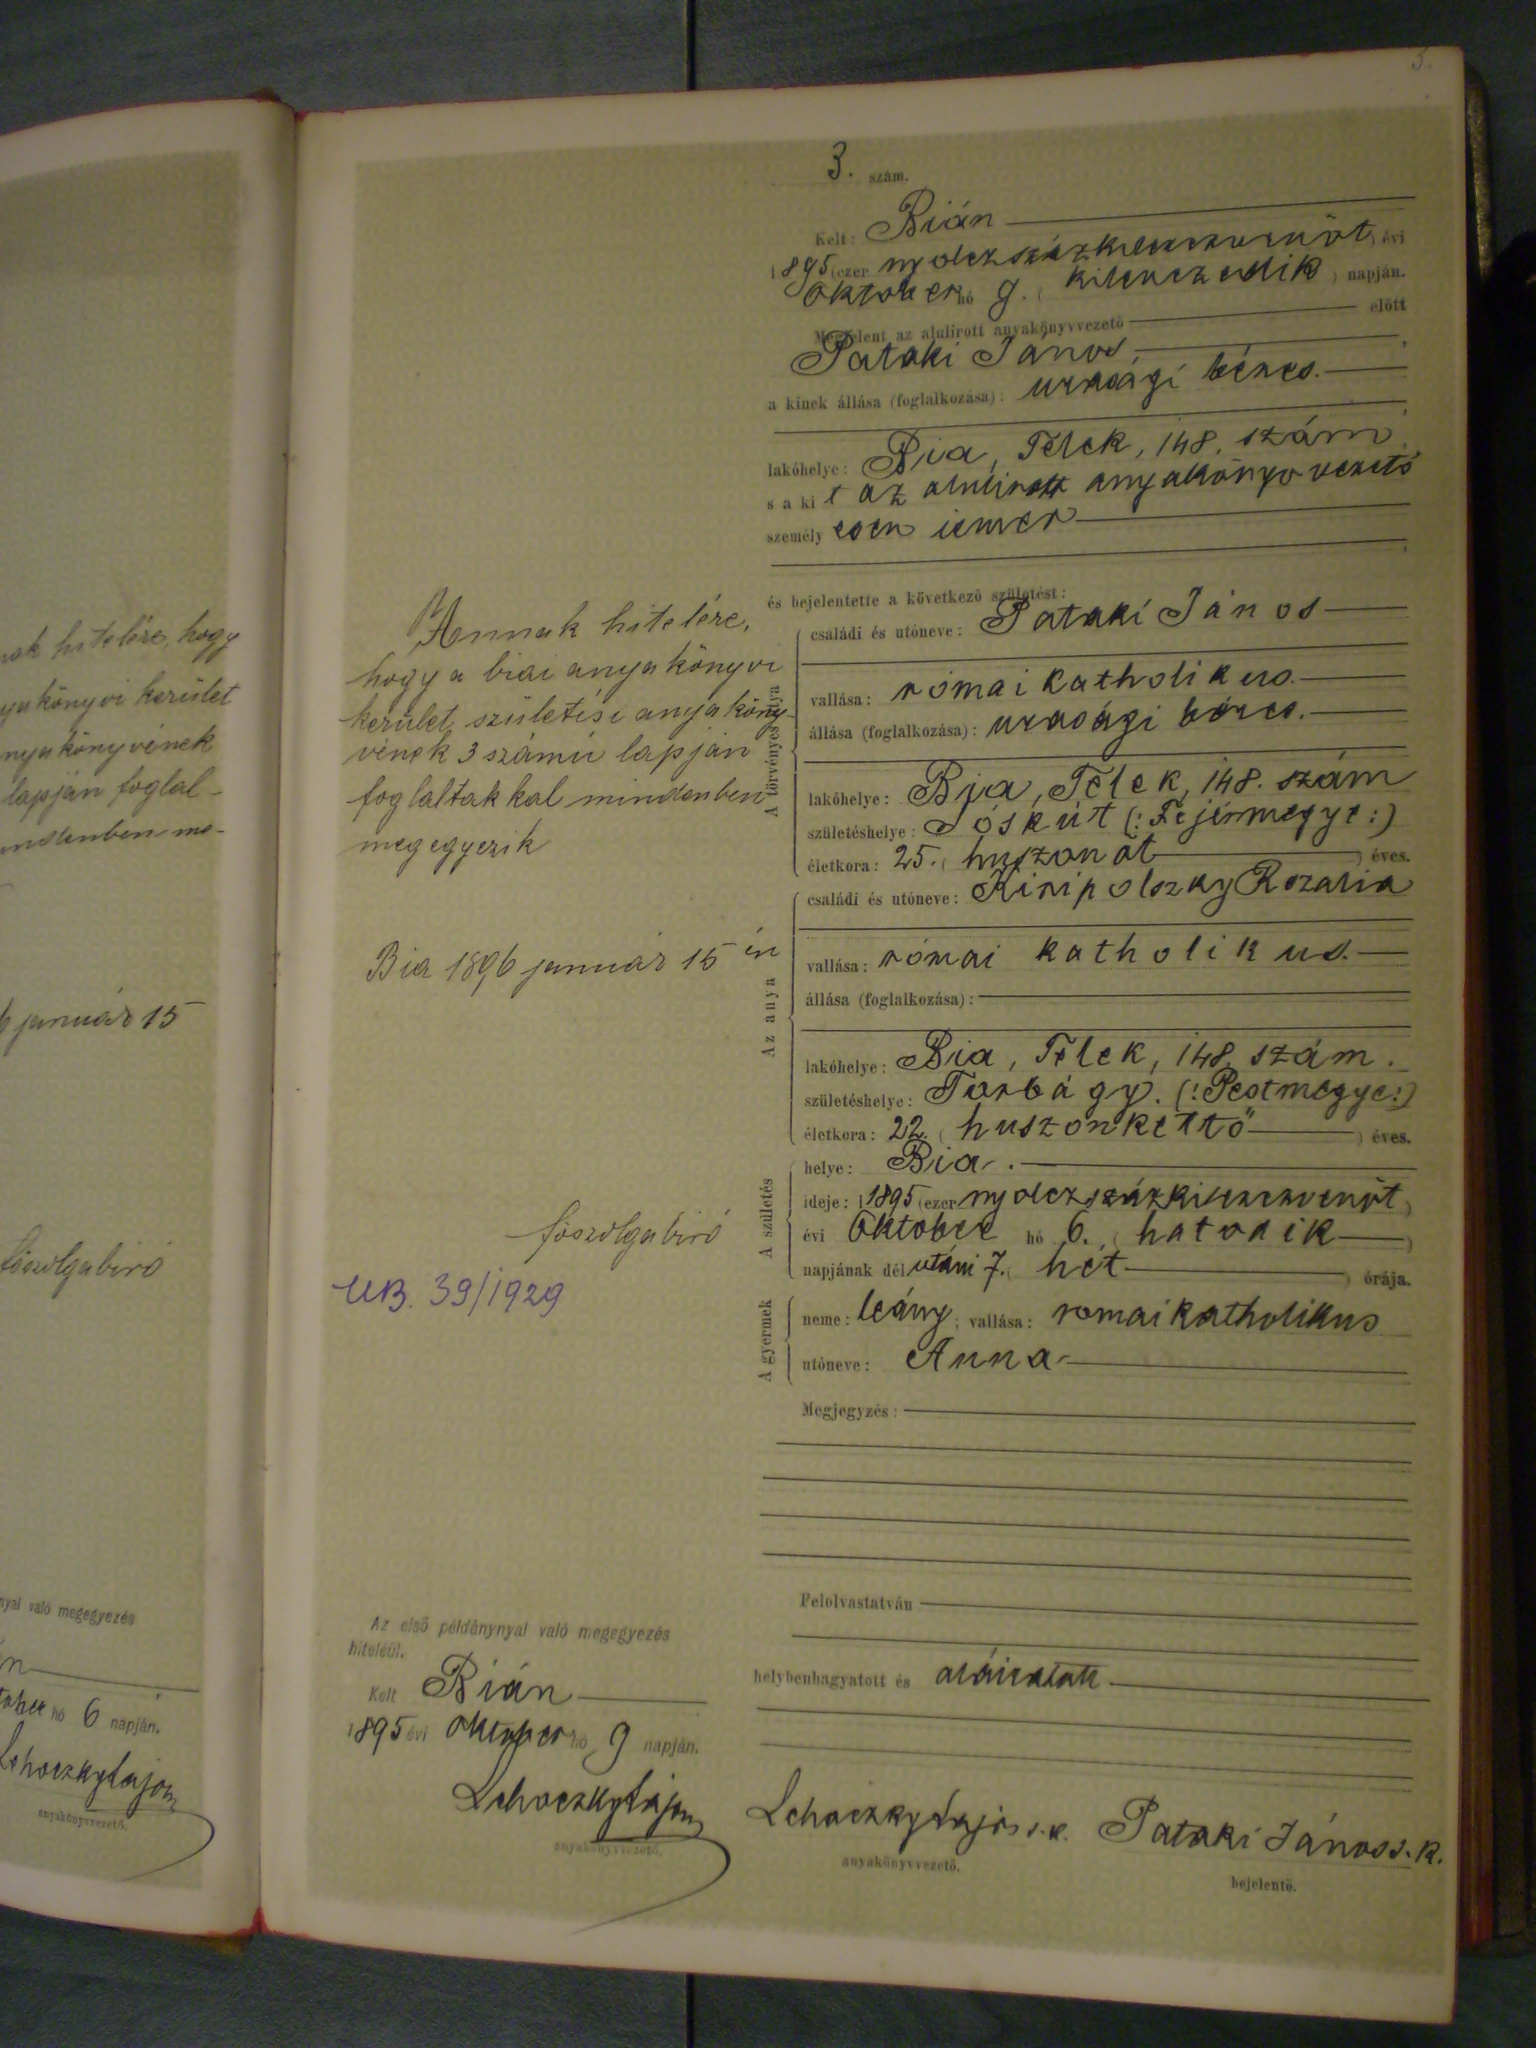 5.
3. szám.
Kelt: Bián
1895 (ezer nyolczszázkilenczvenöt) évi
Oktober hó 9. (kilenczedik) napján.
Megjelent az alulirott anyakönyvvezető előtt
Pataki János,
a kinek állása (foglalkozása): urasági béres.
lakóhelye: Bia, Telek, 148. szám,
s a kit az alulirott anyakönyvvezető
személyesen ismer
és bejelentette a következő születést:
A törvényes atya
családi és utóneve: Pataki János
vallása: római katholikus.
állása (foglalkozása): urasági béres.
lakóhelye: Bia, Telek, 148. szám
születéshelye: Sóskút (: Fejérmegye :)
életkora: 25. (huszonöt) éves.
Az anya
családi és utóneve: Kiripolszky Rozalia
vallása: római katholikus.
állása (foglalkozása):
lakóhelye: Bia, Telek, 148. szám.
születéshelye: Torbágy. (: Pestmegye :)
életkora: 22. (huszonkettő) éves.
A születés
helye: Bia.
ideje: 1895 (ezer nyolczszázkilenczvenöt)
évi Oktober hó 6. (hatodik)
napjának délutáni 7. (hét) órája.
A gyermek
neme: leány; vallása: romai katholikus
utóneve: Anna
Megjegyzés:
Felolvastatván
helybenhagyatott és aláiratott
Lehoczky Lajos s. k.
anyakönyvvezető.
Pataki János s. k.
bejelentő.
Annak hitelére,
hogy a biai anyakönyvi
kerület születési anyaköny-
vének 3 számú lapján
foglaltakkal mindenben
megegyezik
Bia 1896 január 15 én
főszolgabiró
UB. 39/1929
Az első példánynyal való megegyezés
hiteléül.
Kelt Bián
1895 évi oktober hó 9 napján.
Lehoczky Lajos
anyakönyvvezető.
nak hitelére, hogy
yakönyvi kerület
nyakönyvének
lapján foglal-
indenben me-
6 január 15
főszolgabiró
nyal való megegyezés
án
tober hó 6 napján.
Lehoczky Lajos
anyakönyvvezető.